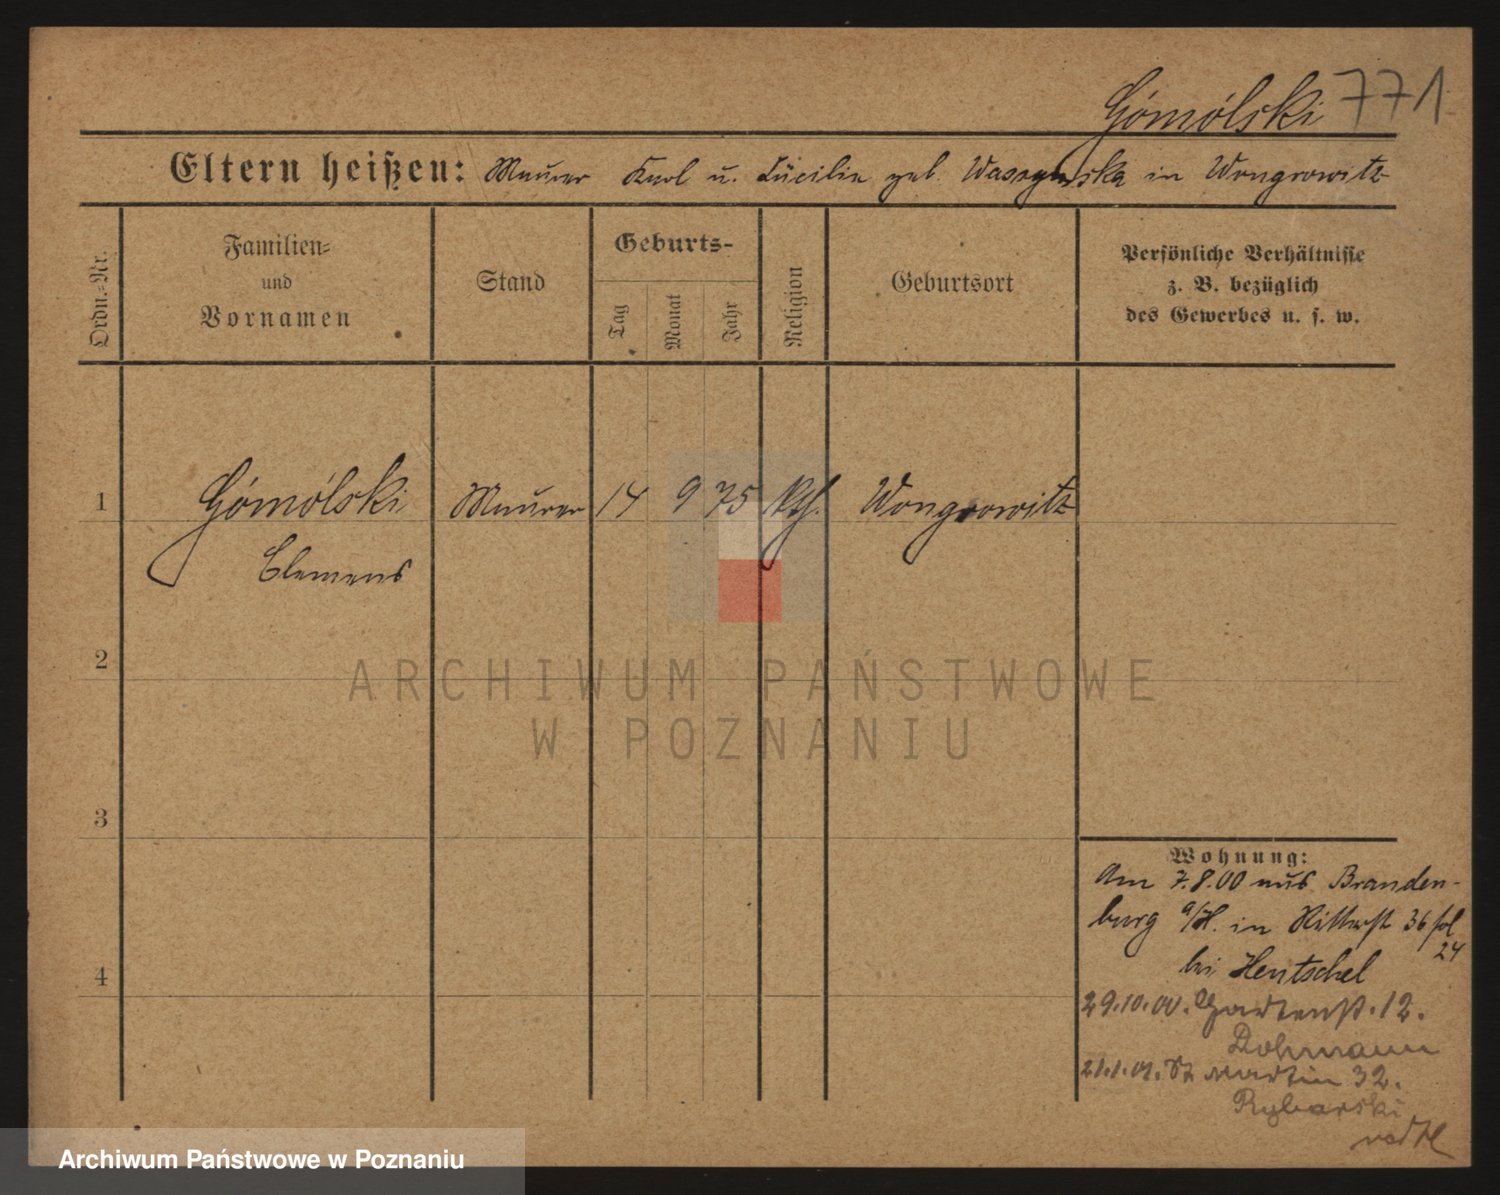 Gómólski 771
Eltern heißen: Maurer Karl u. Lucilie geb. Waszynska in Wongrowitz
Ordn.-Nr.
Familien-
und
Vornamen
Stand
Geburts-
Tag
Monat
Jahr
Religion
Geburtsort
Persönliche Verhältnisse
z. B. bezüglich
des Gewerbes u. s. w.
1 Gómólski Maurer 14 9 75 kth. Wongrowitz
Clemens
2
3
4
Wohnung:
Am 7.8.00 aus Branden-
burg a/H. in Ritterst 36 fol
24
bei Hentschel
29.10.00. Gartenst. 12.
Dohmann
21.1.01. St Martin 32.
Rybarski
ARCHIWUM PAŃSTWOWE
W POZNANIU
Archiwum Państwowe w Poznaniu